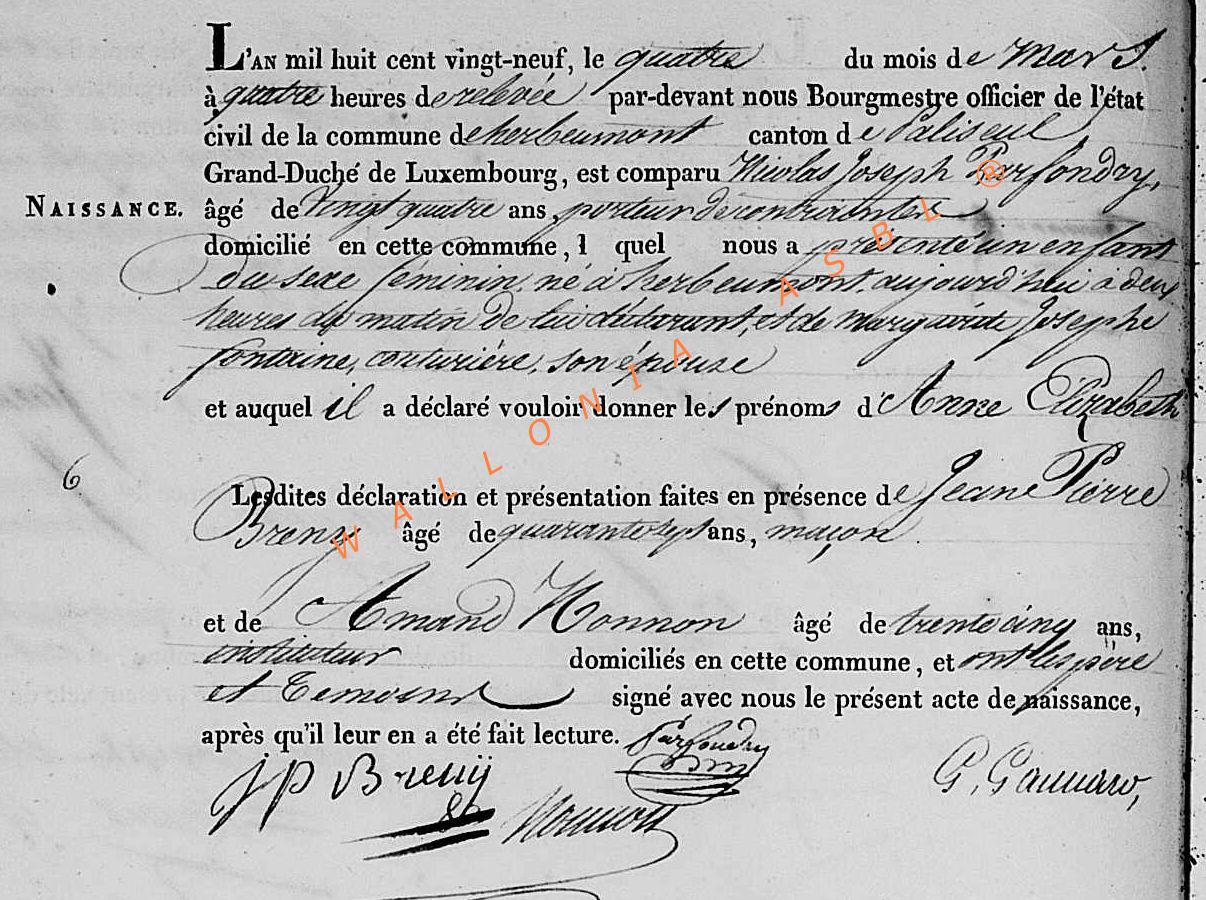 L'AN mil huit cent vingt-neuf, le quatre du mois de Mars.
à quatre heures de relevée par-devant nous Bourgmestre officier de l'état
civil de la commune d'herbeumont canton de Paliseul
Grand-Duché de Luxembourg, est comparu Nicolas Joseph Parfondry,
NAISSANCE. âgé de Vingt quatre ans, porteur de contraintes
domicilié en cette commune, l quel nous a présenté un enfant
du sexe féminin, né à herbeumont aujourd'hui à deux
heures du matin de lui déclarant, et de marguerite Josephe
fontaine, couturière, son épouse
et auquel il a déclaré vouloir donner les prénoms d'Anne Elizabeth
6
Lesdites déclaration et présentation faites en présence de Jeane Pierre
Breny âgé de quarante sept ans, maçon
et de Amand Honnon âgé de trente cinq ans,
instituteur domiciliés en cette commune, et ont les père
et temoins signé avec nous le présent acte de naissance,
après qu'il leur en a été fait lecture. Parfondry
JP Breny G. Gannaro,
Honnon
@ WALLONIA ASBL